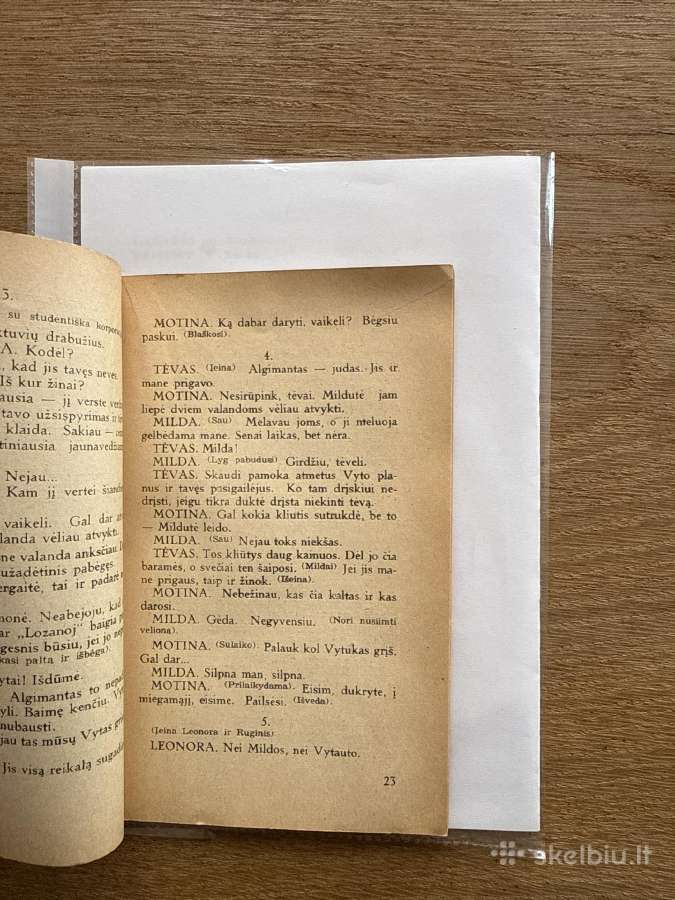 3.
su studentiška
ktuvių drabužius.
A. Kodėl?
kad jis tavęs
Iš kur žinai?
ausia — jų verste
tavo užsispyrimas ir
klaida. Sakiau —
tiniausia jaunavedžiam
Nejau...
Kam jį vertei
vaikeli. Gal dar
landa vėliau atvykti.
ne valanda anksčiau.
užadėtinis pabėgęs.
ergaitė, tai ir padarė
monė. Neabejoju, kad
ar „Lozanoj" baigia
gesnis būsiu, jei jo
kasi paltą ir išbėga).
ytai! Išdūmė.
Algimantas to
yli. Baimę kenčiu.
nubausti.
jau tas mūsų Vytas
Jis visą reikalą
MOTINA. Ką dabar daryti, vaikeli? Bėgsiu
paskui. (Blaškosi).
4.
TĖVAS. (Įeina) Algimantas — judas. Jis ir
mane prigavo.
MOTINA. Nesirūpink, tėvai. Mildutė jam
liepė dviem valandoms vėliau atvykti.
MILDA. (Sau) Melavau joms, o ji meluoja
gelbėdama mane. Senai laikas, bet nėra.
TĖVAS. Milda!
MILDA. (Lyg pabudusi) Girdžiu, tėveli.
TĖVAS. Skaudi pamoka atmetus Vyto pla-
nus ir tavęs pasigailėjus. Ko tam drįskiui ne-
drįsti, jeigu tikra duktė drįsta niekinti tėvą.
MOTINA. Gal kokia kliutis sutrukdė, be to
— Mildutė leido.
MILDA. (Sau) Nejau toks niekšas.
TĖVAS. Tos kliūtys daug kainuos. Dėl jo čia
baramės, o svečiai ten šaiposi. (Mildai) Jei jis ma-
ne prigaus, taip ir žinok. (Išeina).
MOTINA. Nebežinau, kas čia kaltas ir kas
darosi.
MILDA. Gėda. Negyvensiu. (Nori nusiimti
velioną).
MOTINA. (Sulaiko) Palauk kol Vytukas grįš.
Gal dar...
MILDA. Silpna man, silpna.
MOTINA. (Prilaikydama). Eisim, dukryte, į
miegamąjį, eisime. Pailsėsi. (Išveda).
5.
(Įeina Leonora ir Ruginis)
LEONORA. Nei Mildos, nei Vytauto.
23
skelbiu.lt